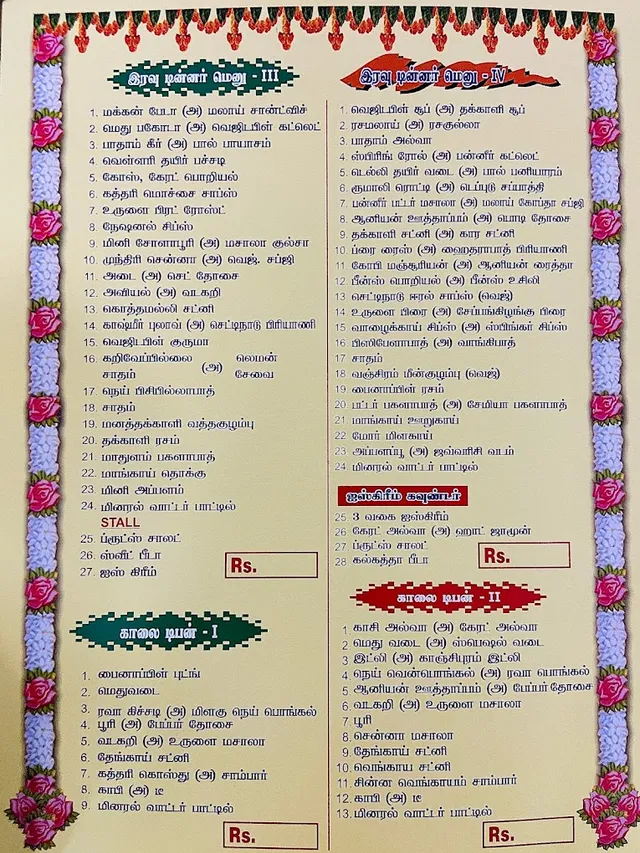 இரவு டின்னர் மெனு - III
1. மக்கன் பேடா (அ) மலாய் சான்ட்விச்
2. மெது பகோடா (அ) வெஜிடபிள் கட்லெட்
3. பாதாம் கீர் (அ) பால் பாயாசம்
4. வெள்ளரி தயிர் பச்சடி
5. கோஸ், கேரட் பொறியல்
6. கத்தரி மொச்சை சாப்ஸ்
7. உருளை பிரட் ரோஸ்ட்
8. நேஷனல் சிப்ஸ்
9. மினி சோளாபூரி (அ) மசாலா குல்சா
10. முந்திரி சென்னா (அ) வெஜ். சப்ஜி
11. அடை (அ) செட் தோசை
12. அவியல் (அ) வடகறி
13. கொத்தமல்லி சட்னி
14. காஷ்மீர் புலாவ் (அ) செட்டிநாடு பிரியாணி
15. வெஜிடபிள் குருமா
16. கறிவேப்பில்லை சாதம் (அ) லெமன் சேவை
17. நெய் பிசிபில்லாபாத்
18. சாதம்
19. மனத்தக்காளி வத்தகுழம்பு
20. தக்காளி ரசம்
21. மாதுளம் பகளாபாத்
22. மாங்காய் தொக்கு
23. மினி அப்பளம்
24. மினரல் வாட்டர் பாட்டில்
STALL
25. ப்ரூட்ஸ் சாலட்
26. ஸ்வீட் பீடா
27. ஐஸ் கிரீம்
Rs.
காலை டிபன் - I
1. பைனாப்பிள் புட்ங்
2. மெதுவடை
3. ரவா கிச்சடி (அ) மிளகு நெய் பொங்கல்
4. பூரி (அ) பேப்பர் தோசை
5. வடகறி (அ) உருளை மசாலா
6. தேங்காய் சட்னி
7. கத்தரி கொஸ்து (அ) சாம்பார்
8. காபி (அ) டீ
9. மினரல் வாட்டர் பாட்டில்
Rs.
இரவு டின்னர் மெனு - IV
1. வெஜிடபிள் சூப் (அ) தக்காளி சூப்
2. ரசமலாய் (அ) ரசகுல்லா
3. பாதாம் அல்வா
4. ஸ்பிரிங் ரோல் (அ) பன்னீர் கட்லெட்
5. டெல்லி தயிர் வடை (அ) பால் பனியாரம்
6. ருமாலி ரொட்டி (அ) டெப்புடு சப்பாத்தி
7. பன்னீர் பட்டர் மசாலா (அ) மலாய் கோப்தா சப்ஜி
8. ஆனியன் ஊத்தாப்பம் (அ) பொடி தோசை
9. தக்காளி சட்னி (அ) கார சட்னி
10. ப்ரை ரைஸ் (அ) ஹைதராபாத் பிரியாணி
11. கோபி மஞ்சூரியன் (அ) ஆனியன் ரைத்தா
12. பீன்ஸ் பொறியல் (அ) பீன்ஸ் உசிலி
13. செட்டிநாடு ஈரல் சாப்ஸ் (வெஜ்)
14. உருளை பிரை (அ) சேப்பங்கிழங்கு பிரை
15. வாழைக்காய் சிப்ஸ் (அ) ஸ்பிங்கர் சிப்ஸ்
16. பிஸிபேளாபாத் (அ) வாங்கிபாத்
17. சாதம்
18. வஞ்சிரம் மீன்குழம்பு (வெஜ்)
19. பைனாப்பிள் ரசம்
20. பட்டர் பகளாபாத் (அ) சேமியா பகளாபாத்
21. மாங்காய் ஊறுகாய்
22. மோர் மிளகாய்
23. அப்பளப்பூ (அ) ஜவ்வரிசி வடம்
24. மினரல் வாட்டர் பாட்டில்
ஐஸ்கிரீம் கவுண்டர்
25. 3 வகை ஐஸ்கிரீம்
26. கேரட் அல்வா (அ) ஹாட் ஜாமூன்
27. ப்ரூட்ஸ் சாலட்
28. கல்கத்தா பீடா
Rs.
காலை டிபன் - II
1. காசி அல்வா (அ) கேரட் அல்வா
2. மெது வடை (அ) ஸ்பெஷல் வடை
3. இட்லி (அ) காஞ்சிபுரம் இட்லி
4. நெய் வெண்பொங்கல் (அ) ரவா பொங்கல்
5. ஆனியன் ஊத்தாப்பம் (அ) பேப்பர் தோசை
6. வடகறி (அ) உருளை மசாலா
7. பூரி
8. சென்னா மசாலா
9. தேங்காய் சட்னி
10. வெங்காய சட்னி
11. சின்ன வெங்காயம் சாம்பார்
12. காபி (அ) டீ
13. மினரல் வாட்டர் பாட்டில்
Rs.